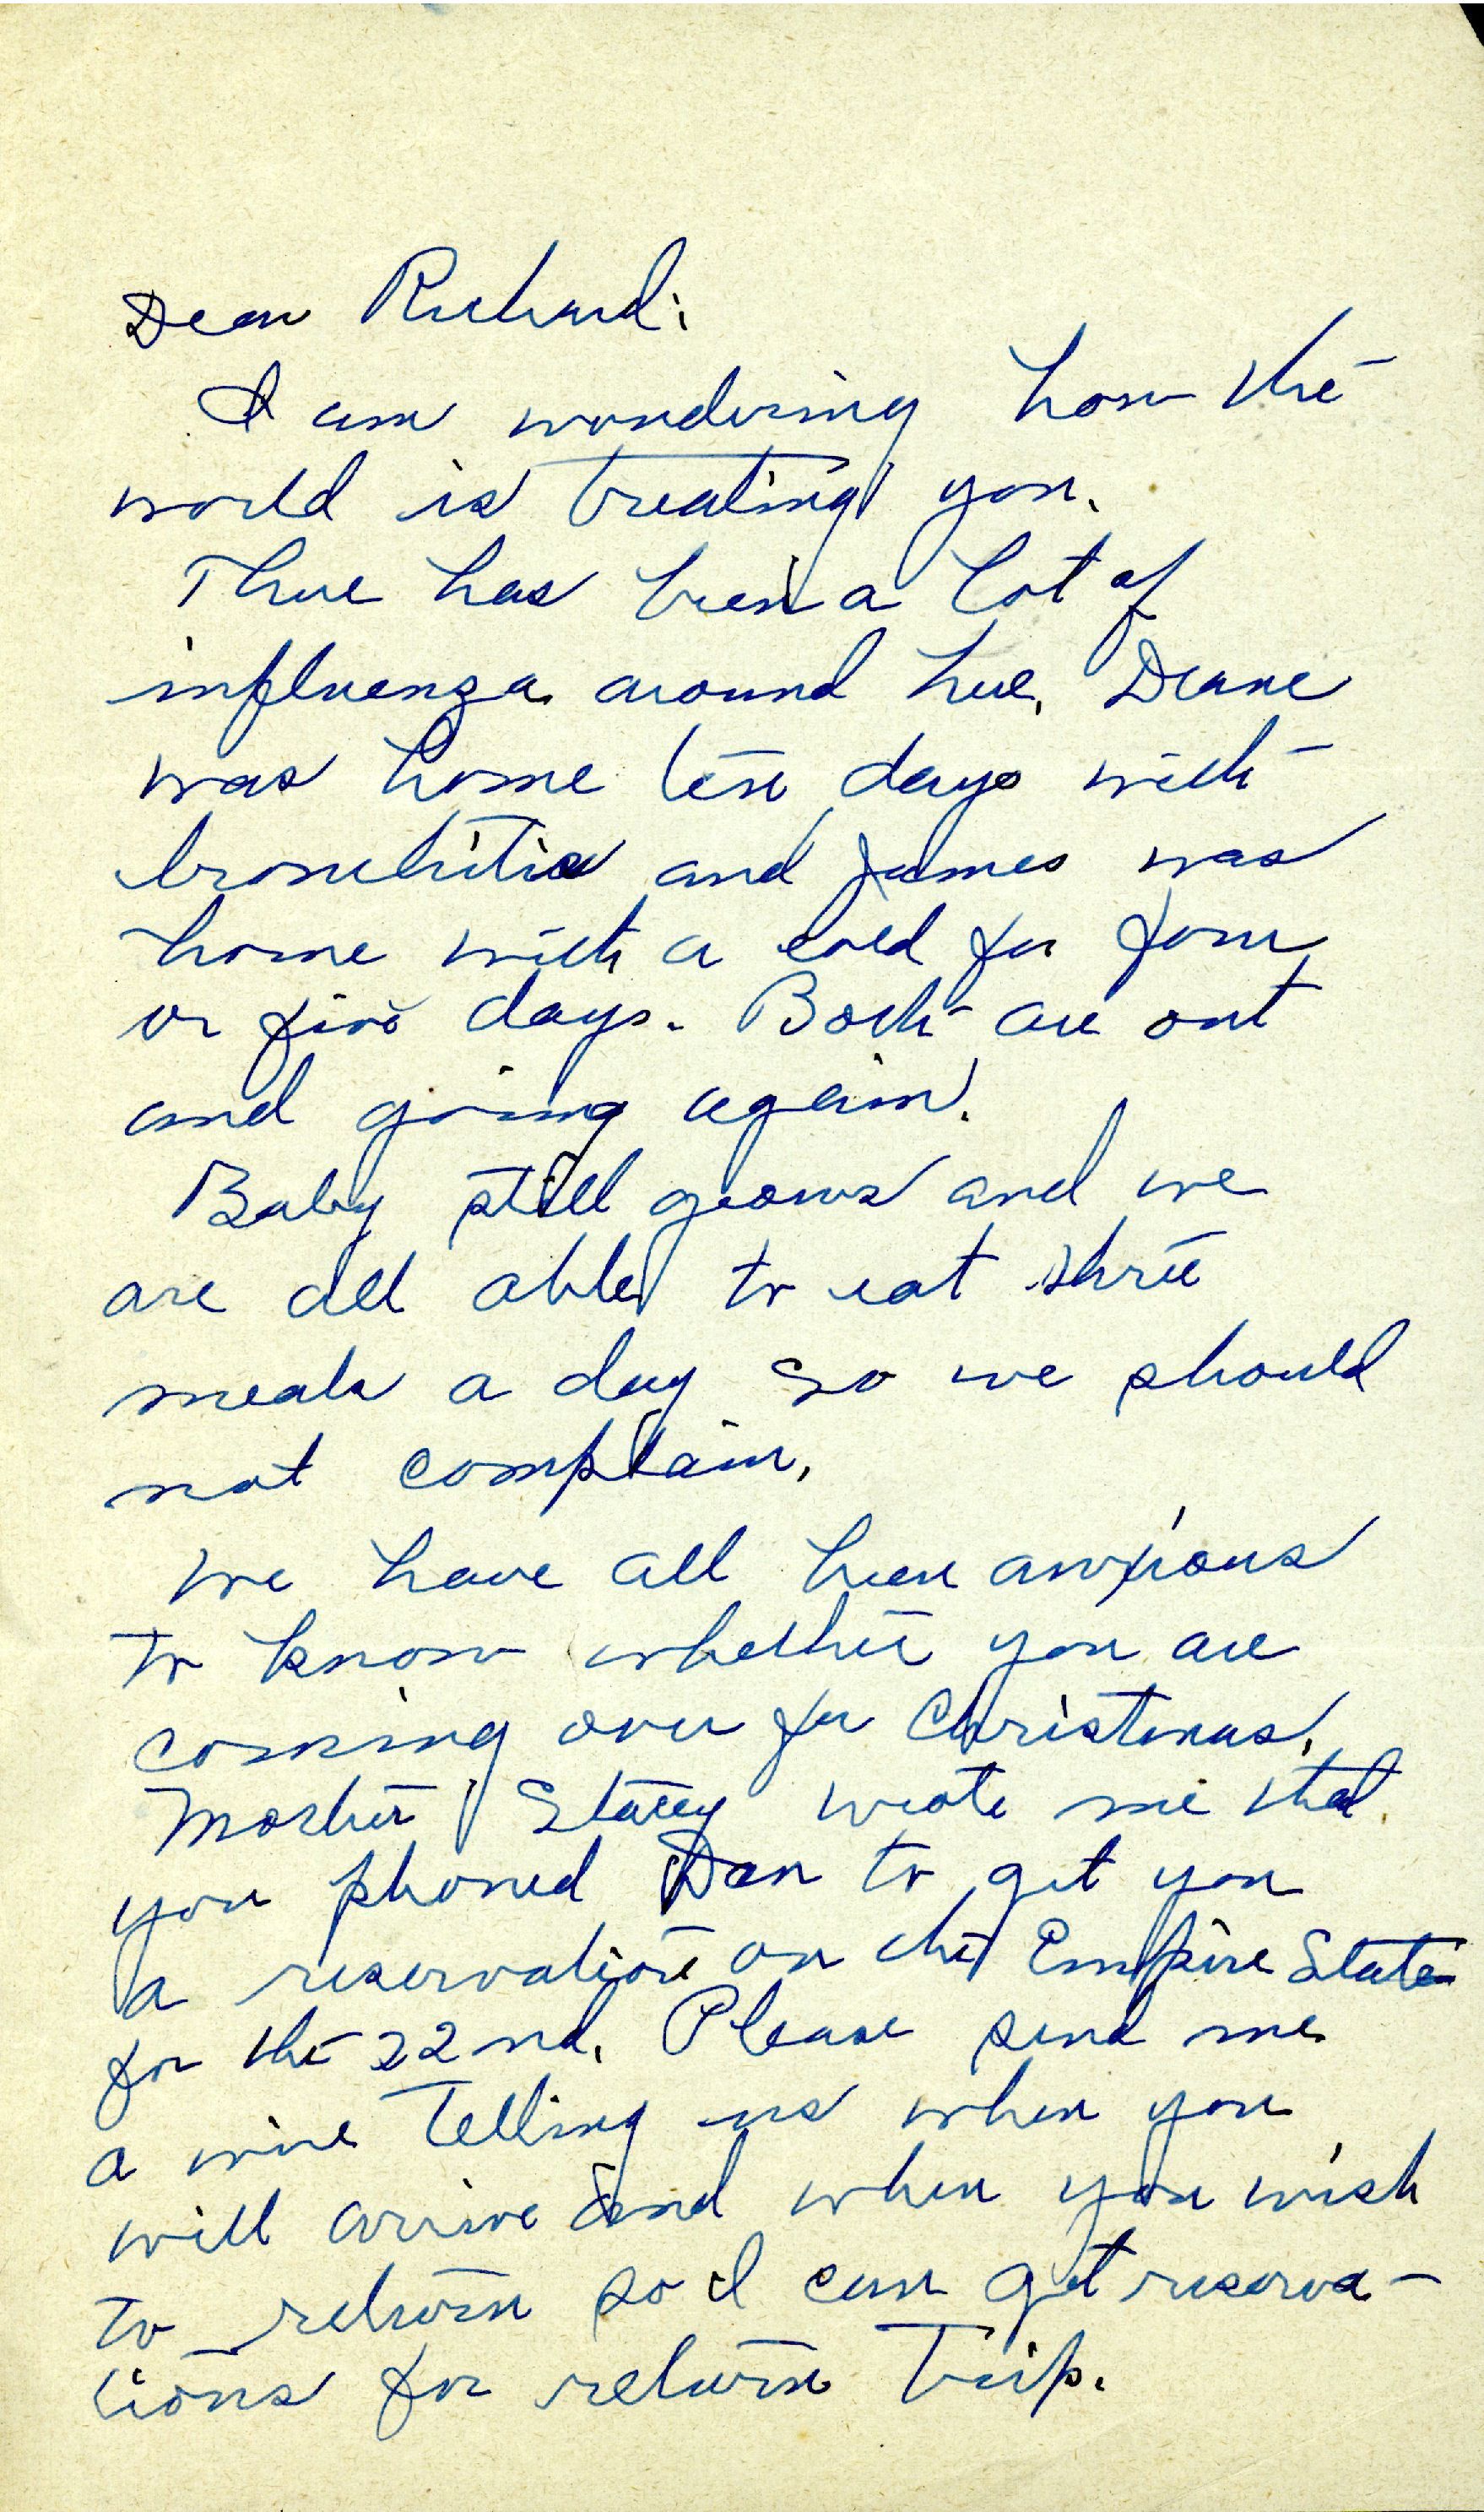 Dear Richard:
I am wondering how the
world is treating you.
There has been a lot of
influenza around here. Deane
was home ten days with
bronchitis and James was
home with a cold for four
or five days. Both are out
and going again.
Baby still grows and we
are all able to eat three
meals a day so we should
not complain.
We have all been anxious
to know whether you are
coming over for Christmas.
Mother Stacey wrote me that
you phoned Dan to get you
a reservation on the Empire State
for the 22nd. Please send me
a wire telling us when you
will arrive and when you wish
to return so I can get reserva-
tions for return trip.